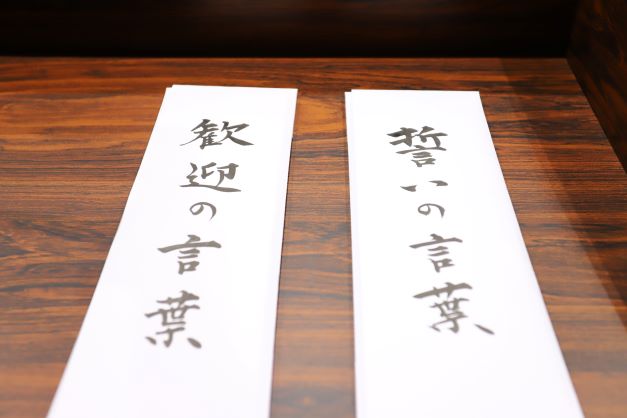 誓いの言葉
歓迎の言葉